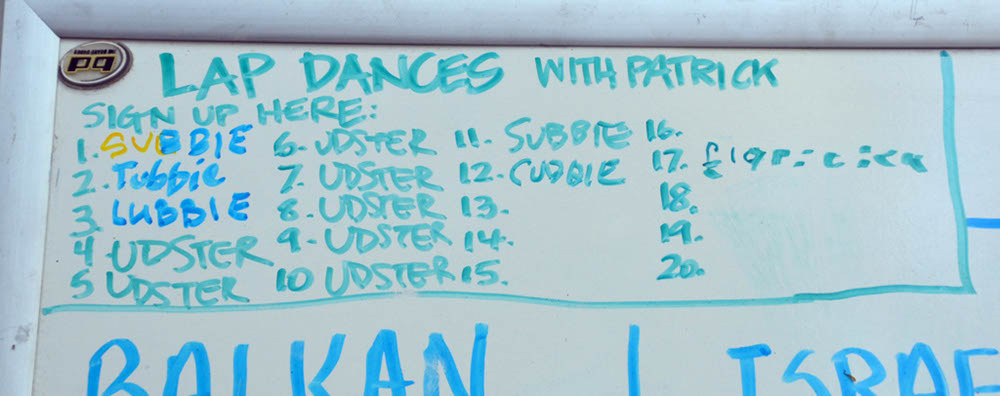 PG
LAP DANCES WITH PATRICK
SIGN UP HERE:
1. SUBBIE 6. UDSTER 11. SUBBIE 16.
2. Tubbie 7. UDSTER 12. CUDDIE 17.
3. LUBBIE 8. UDSTER 13. 18.
4 UDSTER 9. UDSTER 14. 19.
5 UDSTER 10 UDSTER 15. 20.
BALKAN | ISRAE